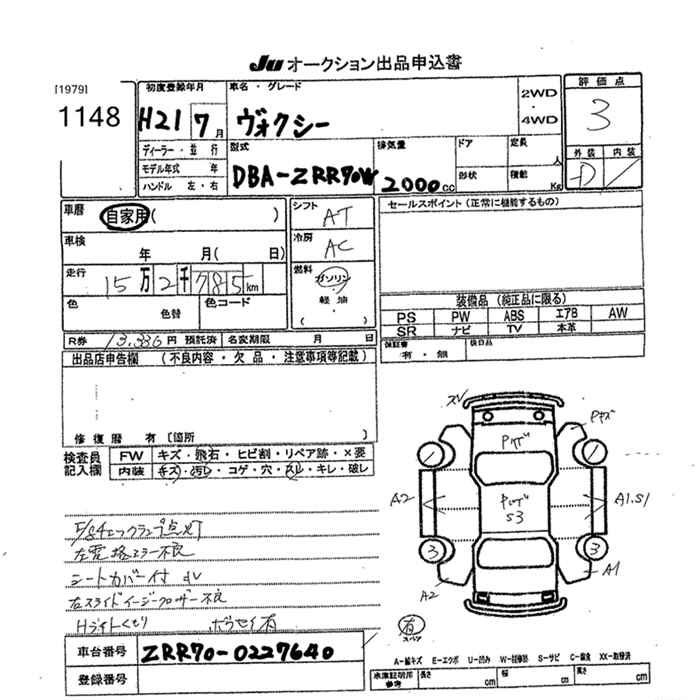 Ju オークション出品申込書
[1979]
1148
初度登録年月
H21 7月
車名・グレード
ヴォクシー
2WD
・
4WD
評価点
3
ディーラー・並行
モデル年式 年
ハンドル 左・右
型式
DBA-ZRR70W
排気量
2000cc
ドア
形状
定員
人
積載
Kg
外装 内装
D
車暦
自家用( )
シフト
AT
セールスポイント(正常に機能するもの)
車検
年 月( 日)
冷房
AC
走行
15万2千785km
燃料
ガソリン
軽油
( )
色
色替
色コード
装備品(純正品に限る)
PS PW ABS エアB AW
SR ナビ TV 本革
R券 13,330円 預託済 名変期限 月 日
保証書
有・無
後日品
出品店申告欄 (不良内容・欠品・注意事項等記載)
修復歴 有〔箇所 〕
検査員
記入欄
FW キズ・飛石・ヒビ割・リペア跡・×要
内装 キズ・汚レ・コゲ・穴・スレ・キレ・破レ
E/Gチェックランプ点灯
左電格ミラー不良
シートカバー付
右スライドイージークローザー不良
Hライトくもり
車台番号 ZRR70-0227640
登録番号
A2
A2
3
S3
A1.S1
A1
3
有
スペア
A-線キズ E-エクボ U-凹み W-補修跡 S-サビ C-腐食 XX-取替済
車庫証明用
参考
長さ cm
幅 cm
高さ cm